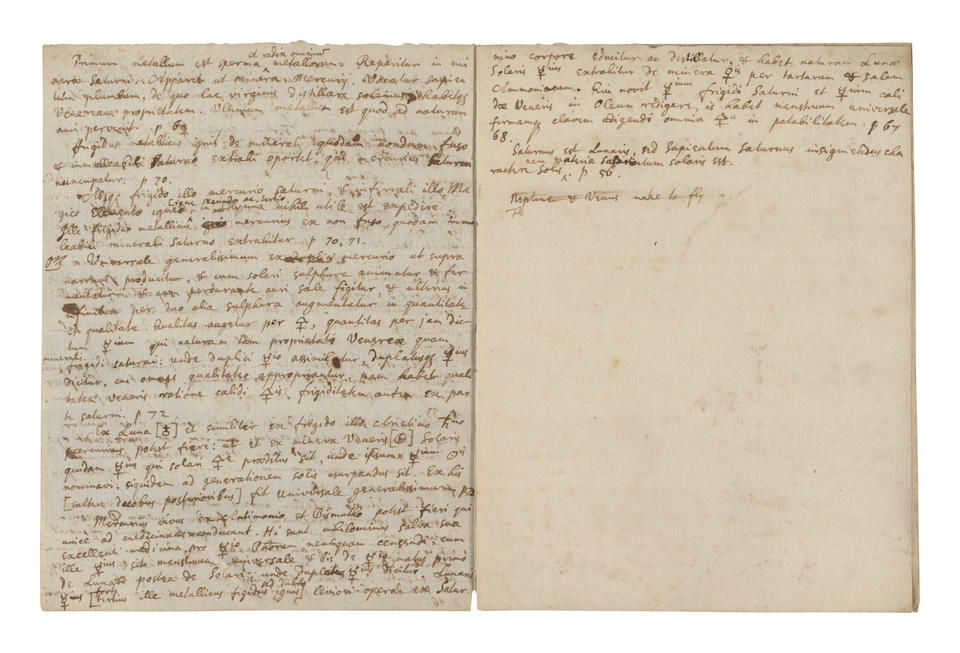 et radix omniū
Primum metallum est sperma metallorum. Reperitur in mi
nera Saturni. Apparet ut minera Mercurij. Vocatur sapien
tum plumbum, de quo lac virginis distillare solemus, habetqꝫ
Venereæ proprietatem. Ultimum metallum est quod ad naturam
auri pervenit. 69
frigidus metallicus ignis de minerali quodam nondum fuso
et immalleabili saturno extrahi oportet, qui mercurius saturni
noincupatur. p 70.
Absqꝫ frigido illo mercurio saturni, & infernali illo Ma
gico
nihil utile est expedire
Ille frigidus metallicus mercurius ex non fuso quodam imma
leabili minerali saturno extrahitur p 70, 71.
Universale generalissimum ex mercurio ut supra
producitur, & cum solari sulphure animatur & fer
mentatur & perdurante auri sale figitur, & ulterius in
per duo alia sulphura augmentatur in quantitate
et qualitate. Qualitas augetur per 🜍, quantitas per jam dic
tum ☿ium qui naturam tem proprietatis Venereæ quam
mineralis
frigidi saturni: unde duplici ☿io assimilatur, duplatusqꝫ ☿ius
dicitur, cui omnes qualitates appropriantur, nam habet quali
tates veneris ratione calidi 🜍is, frigiditatem autem ex par
te saturni. p 72
Ex Luna [♁] et similiter ex frigido illo ♄no
mercurius potest fieri: ut et ex minera Veneris Solaris
quidam ☿ius qui solari 🜍e præditus sit, unde ipsum ☿ium ☉is
nominavi: siquidem ad generationem solis usurpandus sit. Ex his
[saltem duobus posterioribus] fit universale generalissimum p 72
Mercurius vivus ex Antimonio et Bismutho potest fieri qui
unice ad medicinam conducunt. Hi sunt nihilominus salva sua
excellenti medicina, pro ☿io Phorum neutiquam censendi: cum
ille ☿ius sit menstruum universale & bis de ☿io natus primo
de Lunare postea de Solari: unde duplatus ☿ius dicitur. Lunaris
☿ius [forte tertius ille metallicus frigidus ignis] leviori opera ex Satur
nino corpore educitur ac distillatur, & habet naturam Lunæ
Solaris ☿ius extrahitur de minera 🜍is per tartarum & salem
Armoniacum. Qui novit ☿ium frigidi Saturni et ☿ium cali
dæ Veneris in Oleum redigere, is habet menstruum universale
firmamqꝫ clavem redigendi omnia 🜍a in potabilitatem. p 67
68.
Saturnus est Lunaris, sed sapientum Saturnus insigniendus cha
nam materia sapientum solaris est.
ractere solis p 56.
Neptune & Venus make to fly